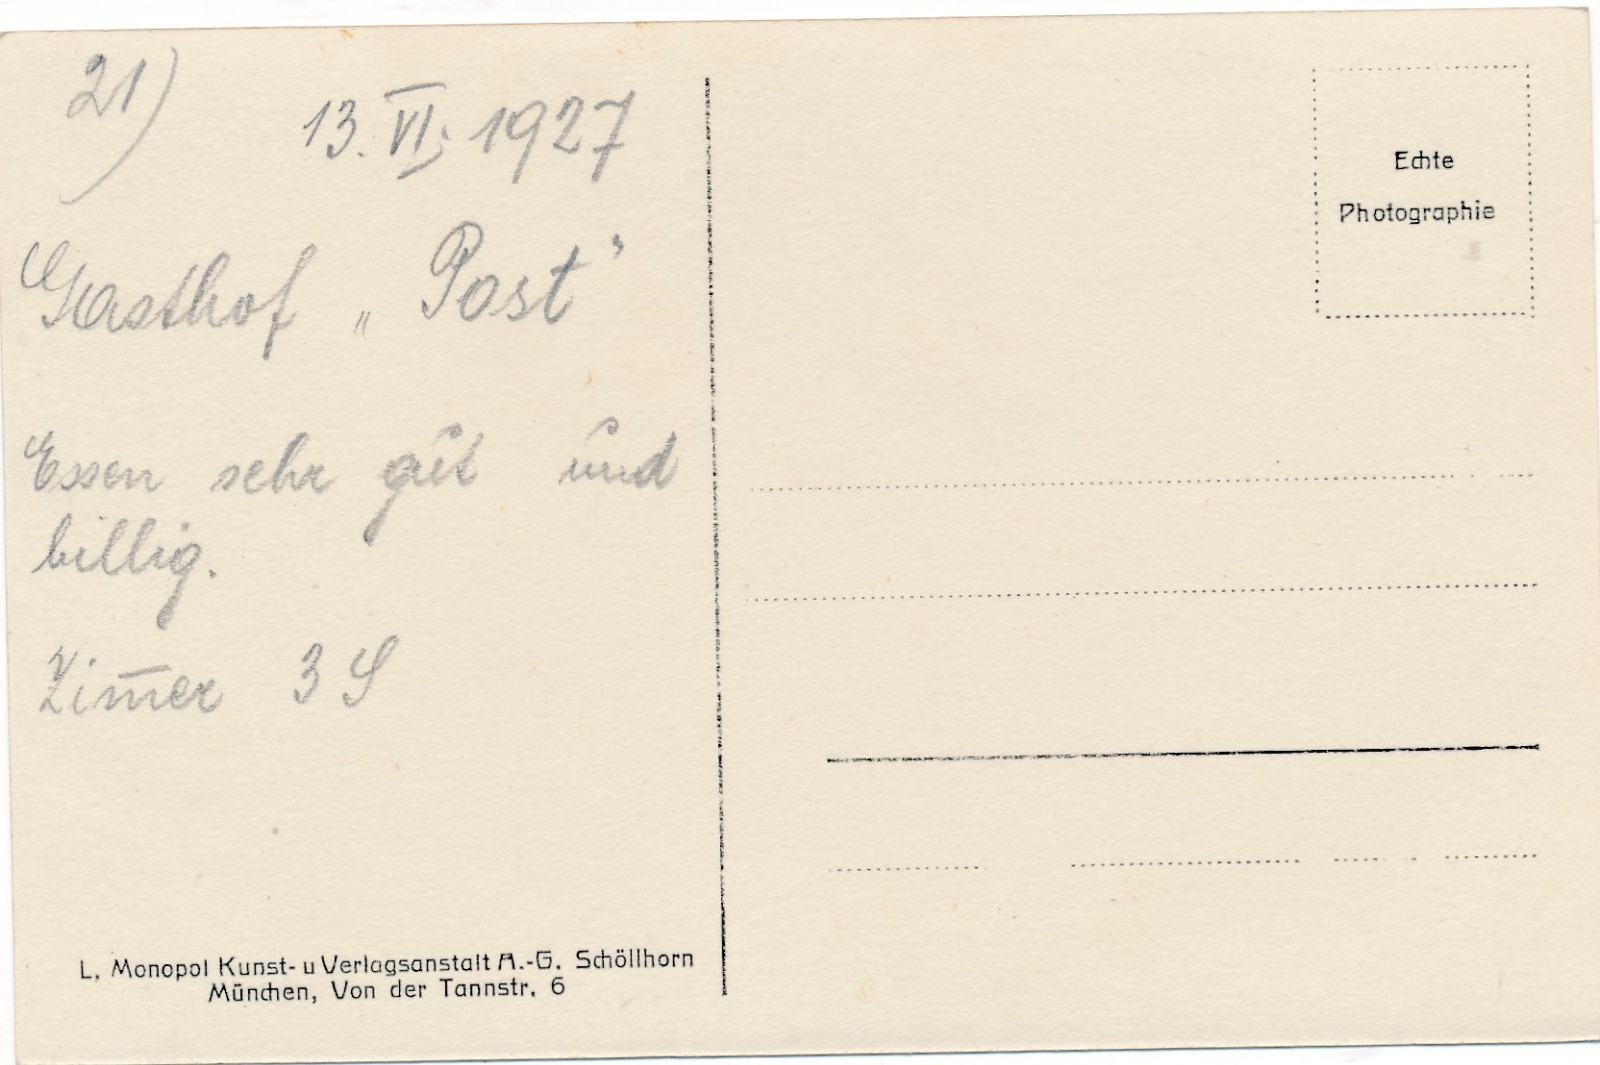 21)
13. VI. 1927
Gasthof „Post"
Essen sehr gut und
billig.
Zim̅er 3 S
L. Monopol Kunst- u Verlagsanstalt A.-G. Schöllhorn
München, Von der Tannstr. 6
Echte
Photographie